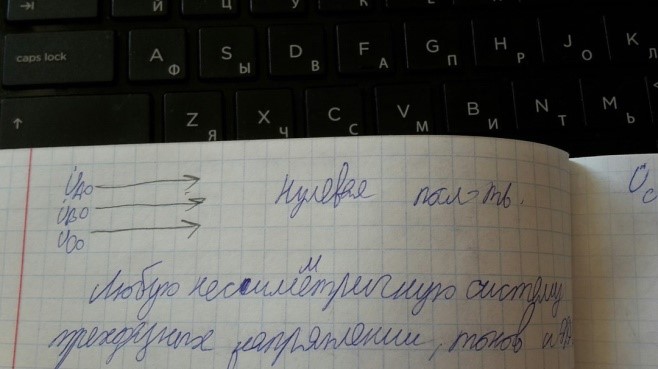 caps lock A Ф S Ы D В F А G П H Р J О K Л
Z Я X Ч C С V М B И N Т M Ь
U̇A0
U̇B0 Нулевая посл-ть.
U̇C0
U̇C
Любую несимметричную систему
трехфазных напряжений, токов и